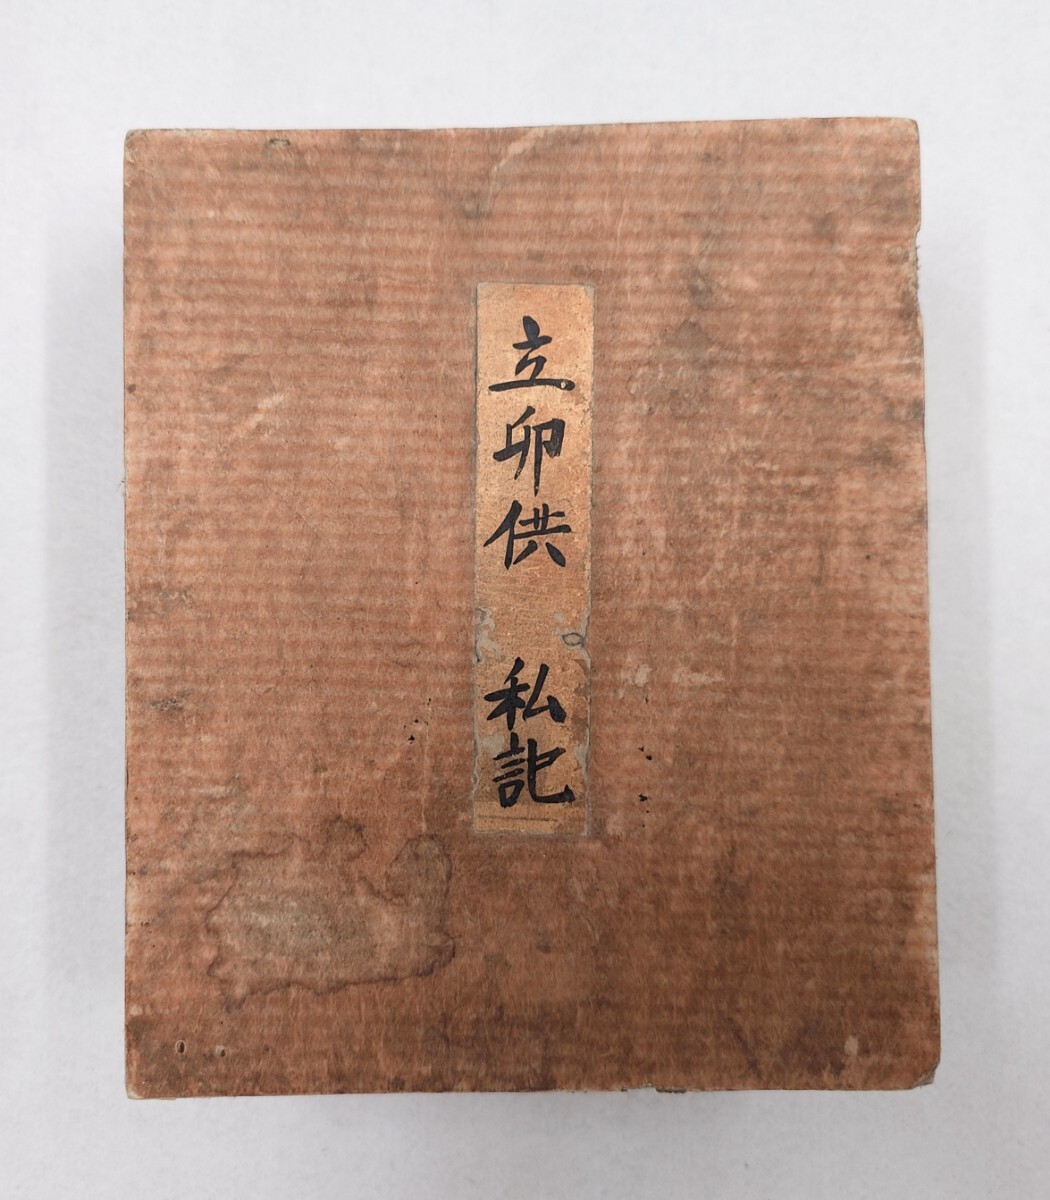 立卯供 私記